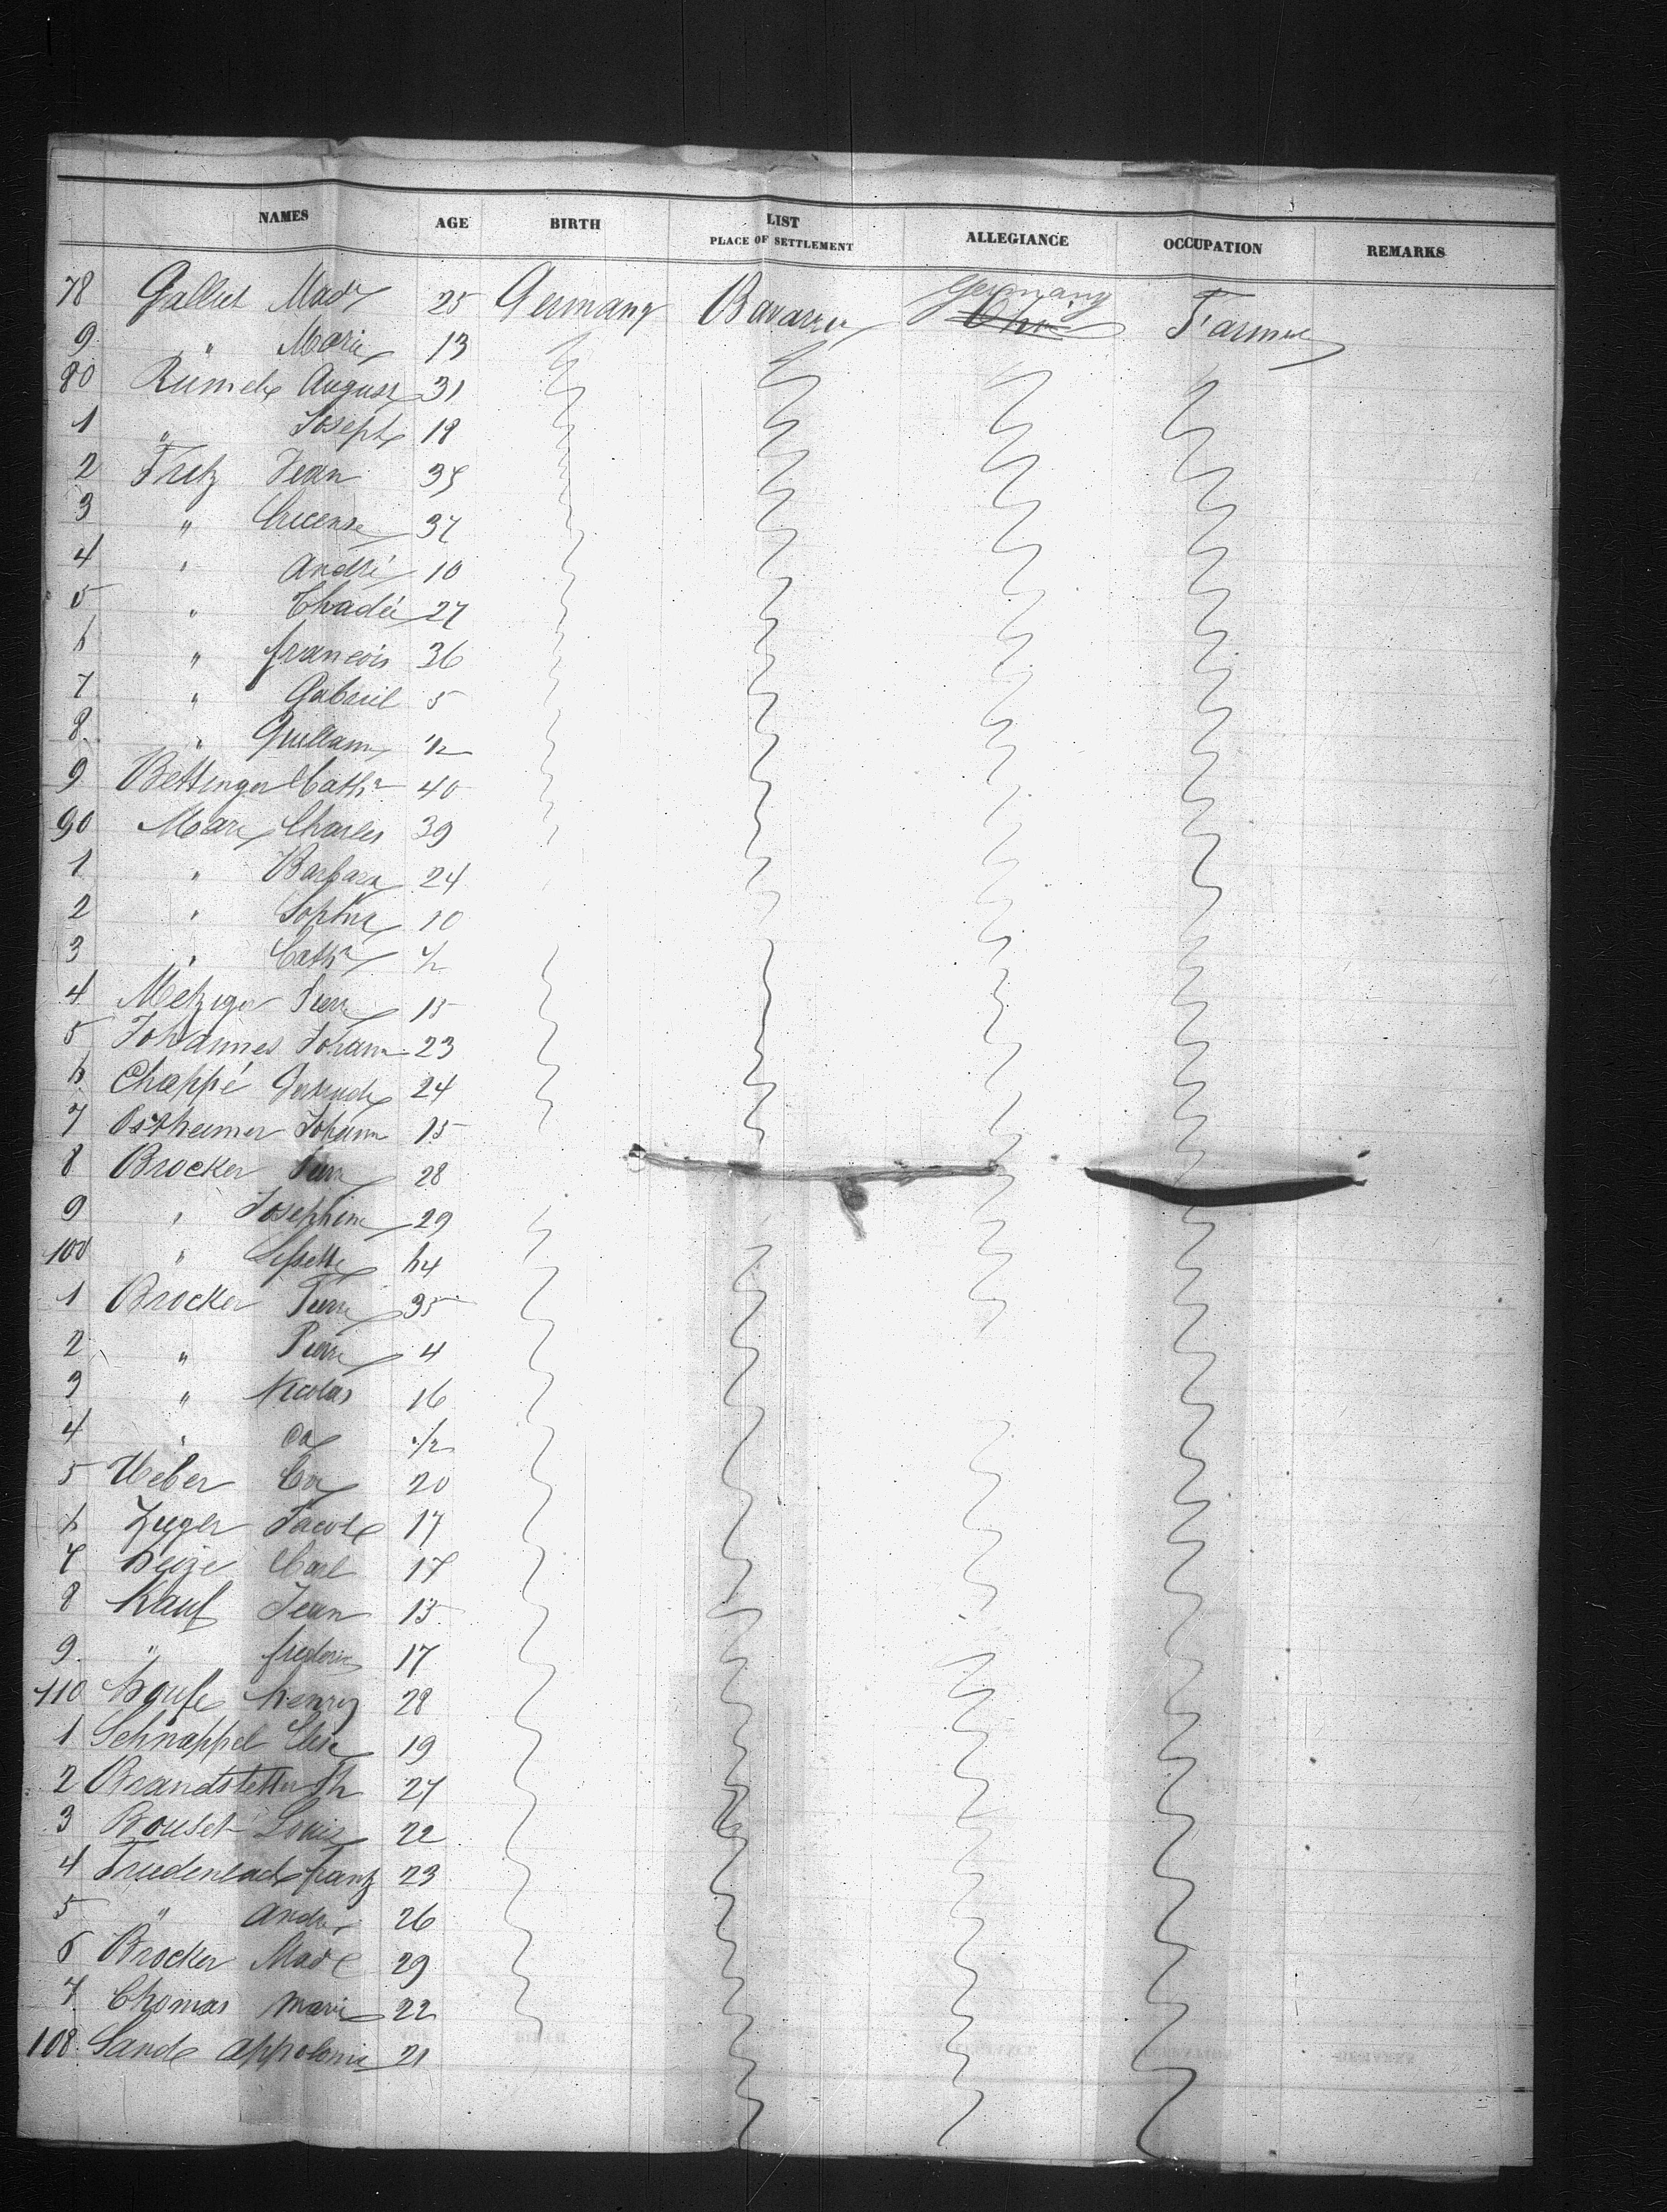 NAMES AGE BIRTH LIST PLACE OF SETTLEMENT ALLEGIANCE OCCUPATION REMARKS
78 Galliet Mad 25 Germany Bavaria Germany Ohio Farmer
9 " Marie 13
80 August 31
1 " Joseph 18
2 Fretz Jean 35
3 " 37
4 " André 10
5 " Thadée 27
6 " francois 36
7 " Gabriel 5
8 " Guillaume 1/2
9 Bettinger Cathe 40
90 Marx Charles 39
1 " Barbara 24
2 " Sophie 10
3 " Cathe 1/2
4 Metzger Pierre 15
5 Johannes Johann 23
6 Chappé Gertrude 24
7 Ostheimer Johann 15
8 Brocker Pierre 28
9 " Josephine 29
100 " Lisette 64
1 Brocker Pierre 35
2 " Pierre 4
3 " Nicolas 16
4 " 1/2
5 Weber 20
6 Zieger Jacob 17
7 Carl 17
8 Kauf Jean 15
9 " frederic 17
110 henry 28
1 Schnappel Elise 19
2 Brandstetter 27
3 Bouset Louis 22
4 Friedenbach franz 23
5 " André 26
6 Brocker Made 29
7 Thomas Marie 22
108 Lande Appolonie 21